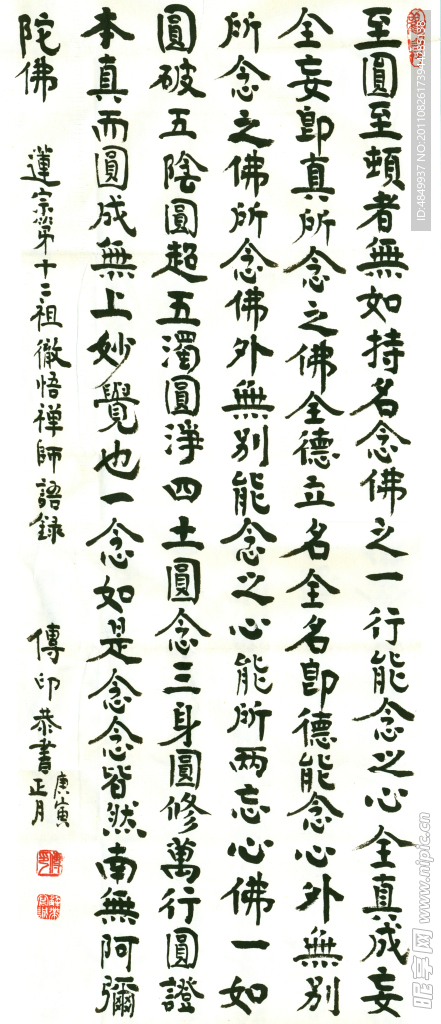 至圓至頓者無如持名念佛之一行能念之心全真成妄
全妄即真所念之佛全德立名全名即德能念心外無別
所念之佛所念佛外無別能念之心能所两忘心佛一如
圓破五陰圓超五濁圓淨四土圓念三身圓修萬行圓證
本真而圓成無上妙覺也一念如是念念皆然南無阿彌
陀佛 蓮宗第十二祖徹悟禅師語録 傳印恭書 庚寅正月
ID:4849937
昵享网 www.nipic.cn